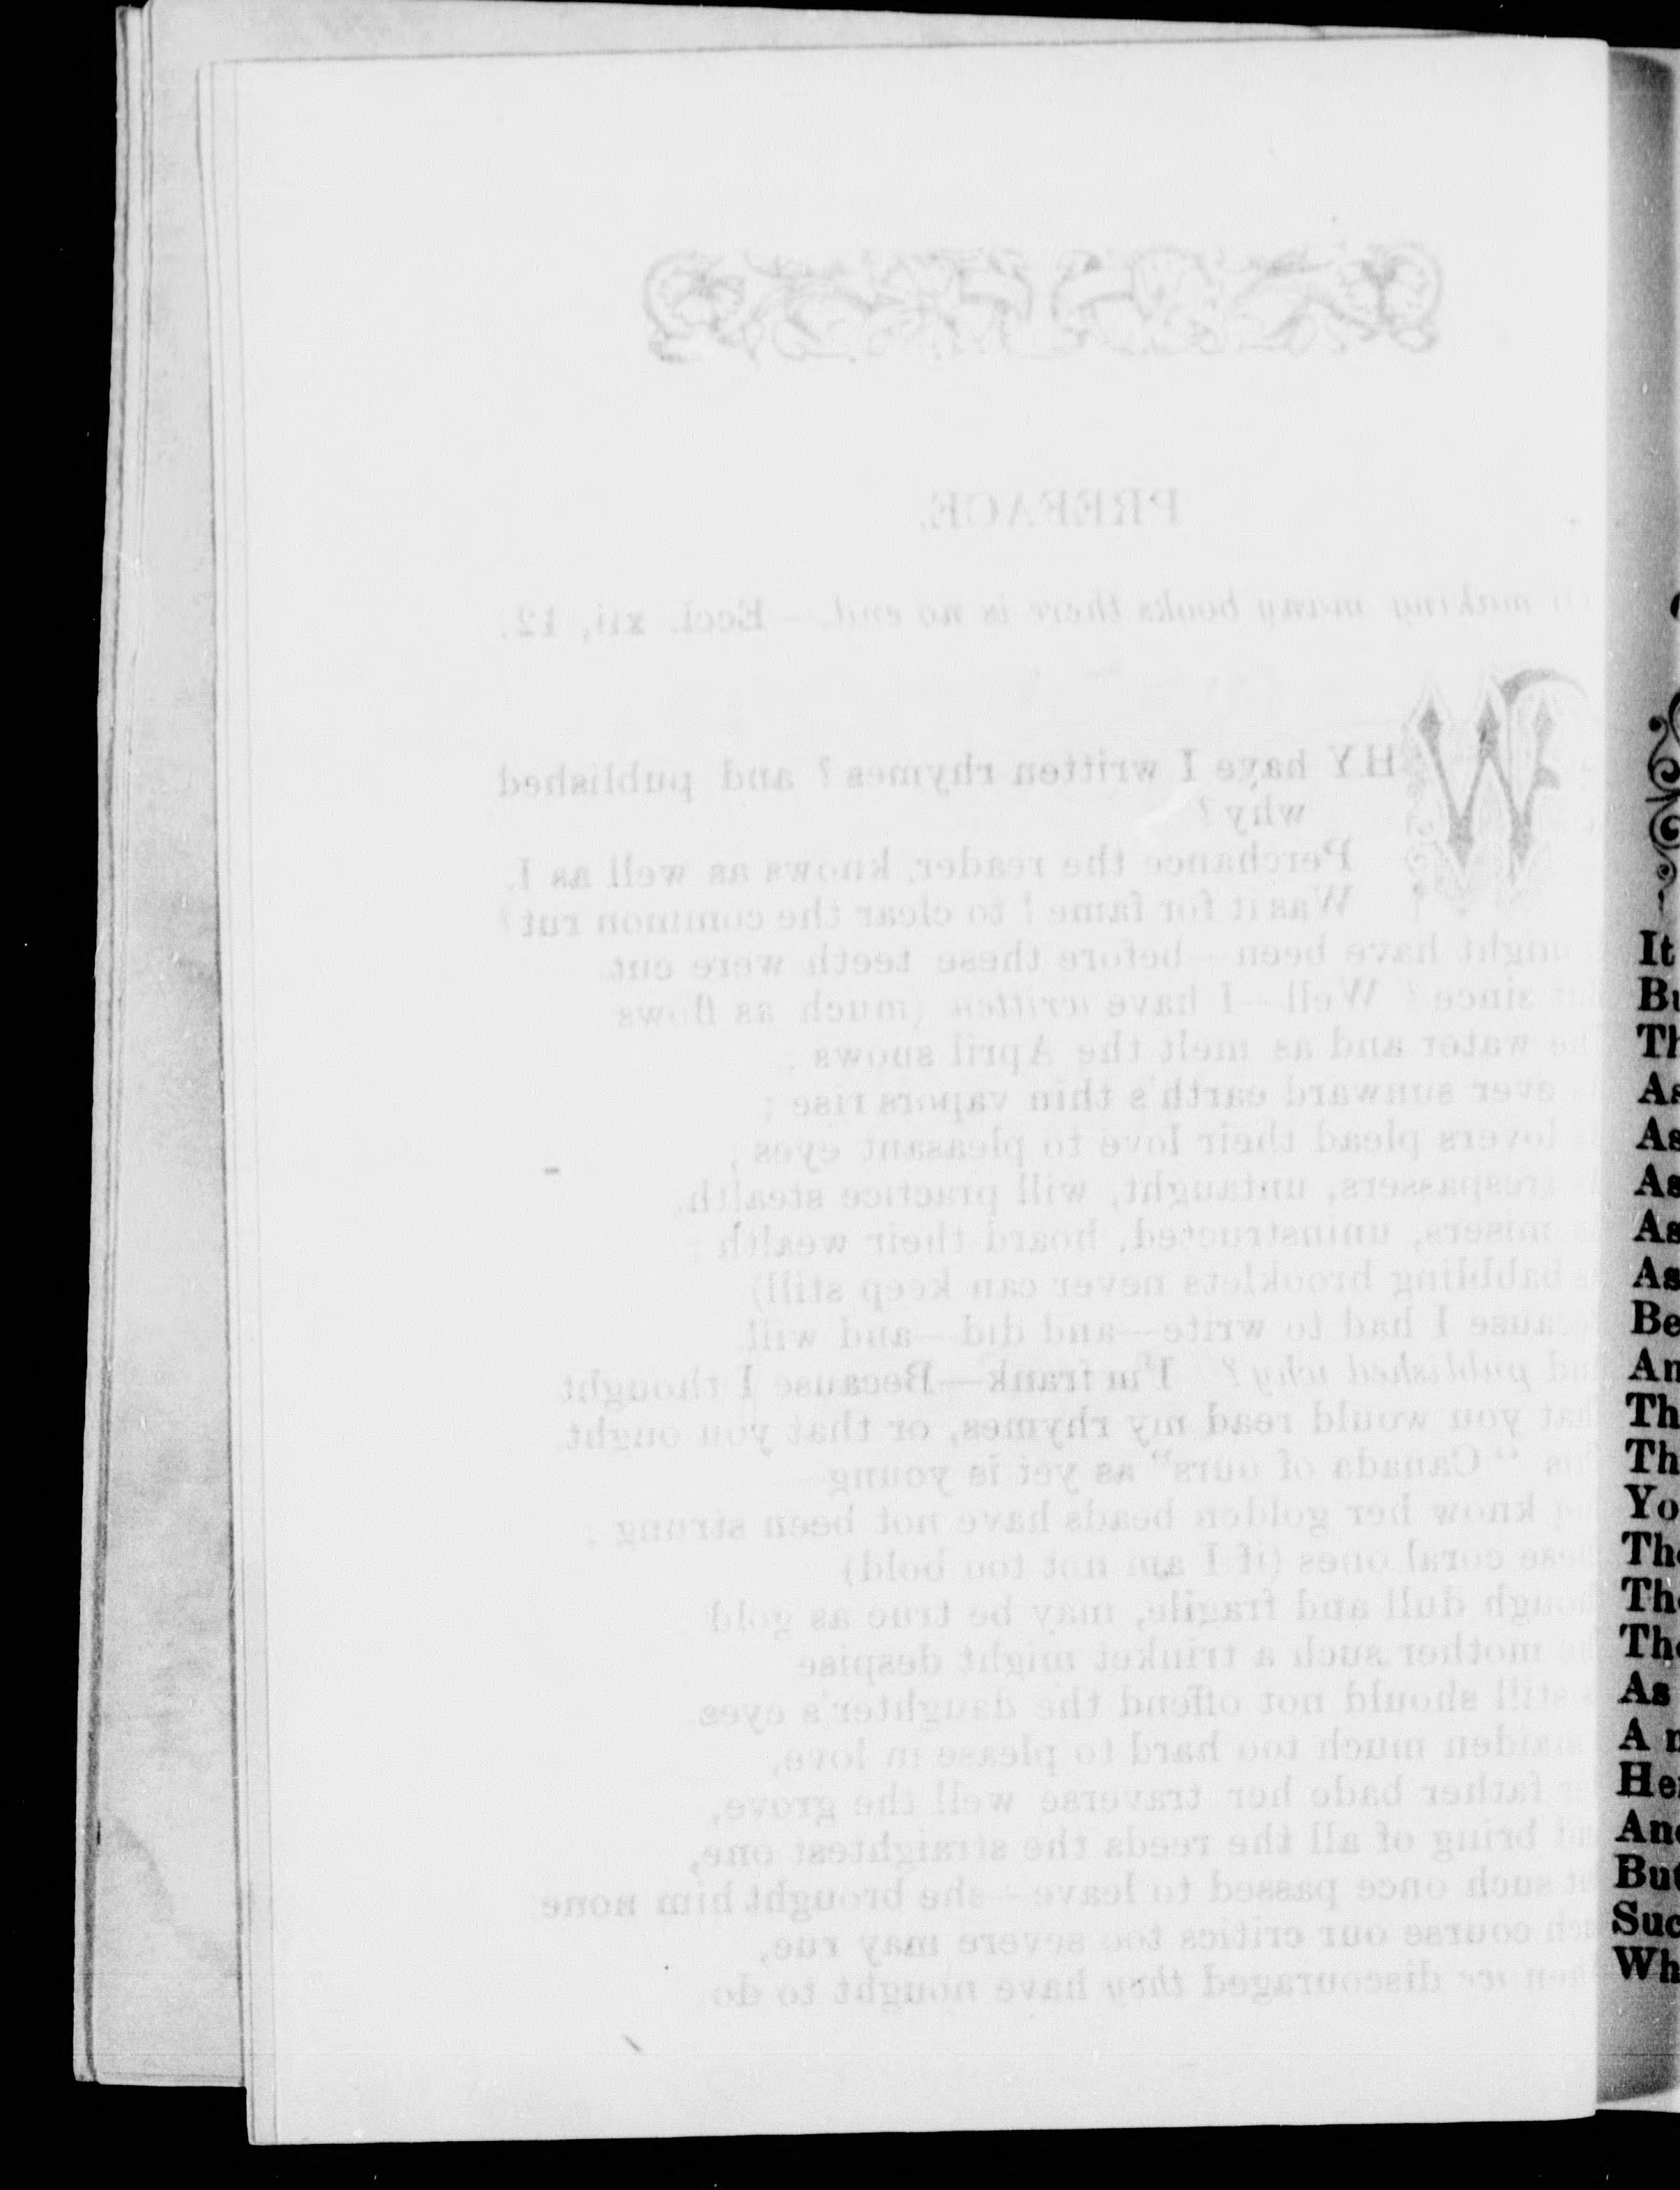 PREFACE.
making many books there is no end.—Eccl. xii, 12.
WHY have I written rhymes? and published
why?
Perchance the reader, knows as well as I.
Was it for fame! to clear the common rut?
might have been—before these teeth were cut.
since? Well—I have written (much as flows
water and as melt the April snows;
ever sunward earth's thin vapors rise;
lovers plead their love to pleasant eyes;
trespassers, untaught, will practice stealth,
misers, uninstructed, hoard their wealth;
babbling brooklets never can keep still)
I had to write—and did—and will.
published why? I'm frank—Because I thought
you would read my rhymes, or that you ought
"Canada of ours" as yet is young—
know her golden beads have not been strung;
coral ones (if I am not too bold)
dull and fragile, may be true as gold
mother such a trinket might despise
still should not offend the daughter's eyes.
maiden much too hard to please in love,
father bade her traverse well the grove,
bring of all the reeds the straightest one,
such once passed to leave—she brought him none
course our critics too severe may rue,
we discouraged they have nought to do
It
Bu
Th
As
As
As
As
As
Be
An
Th
Th
Yo
The
The
The
As
A
He
And
But
Suc
Wh